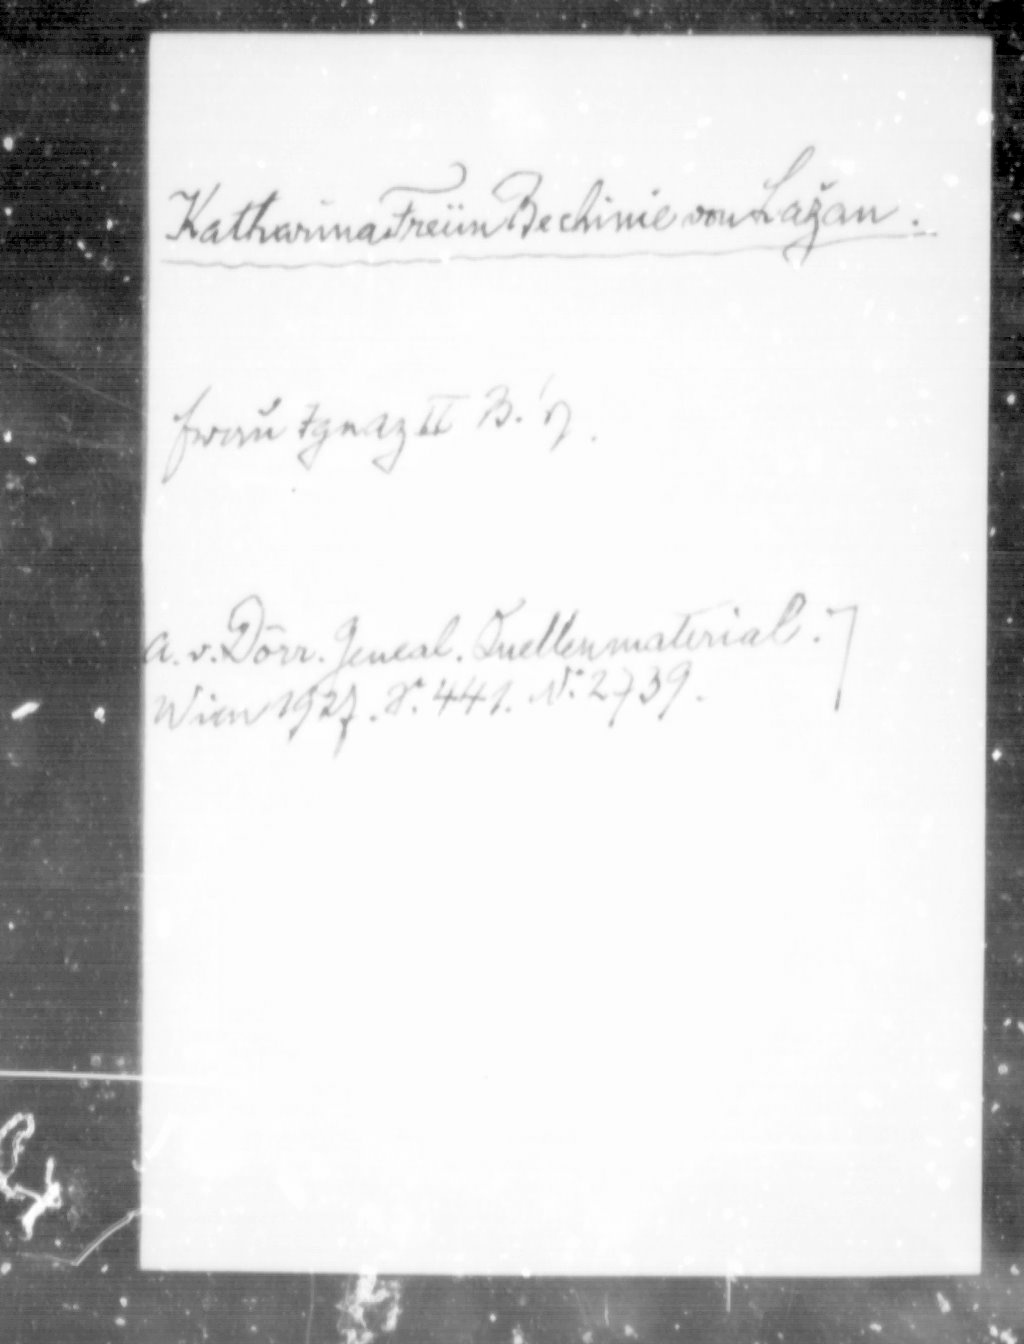 Katharina Freiin Bechinie von Lažan.
fraŭ Ignaz II B.
A. v. Dörr. Geneal. Quellenmaterial.
Wien 1927. S. 441. N. 2739.